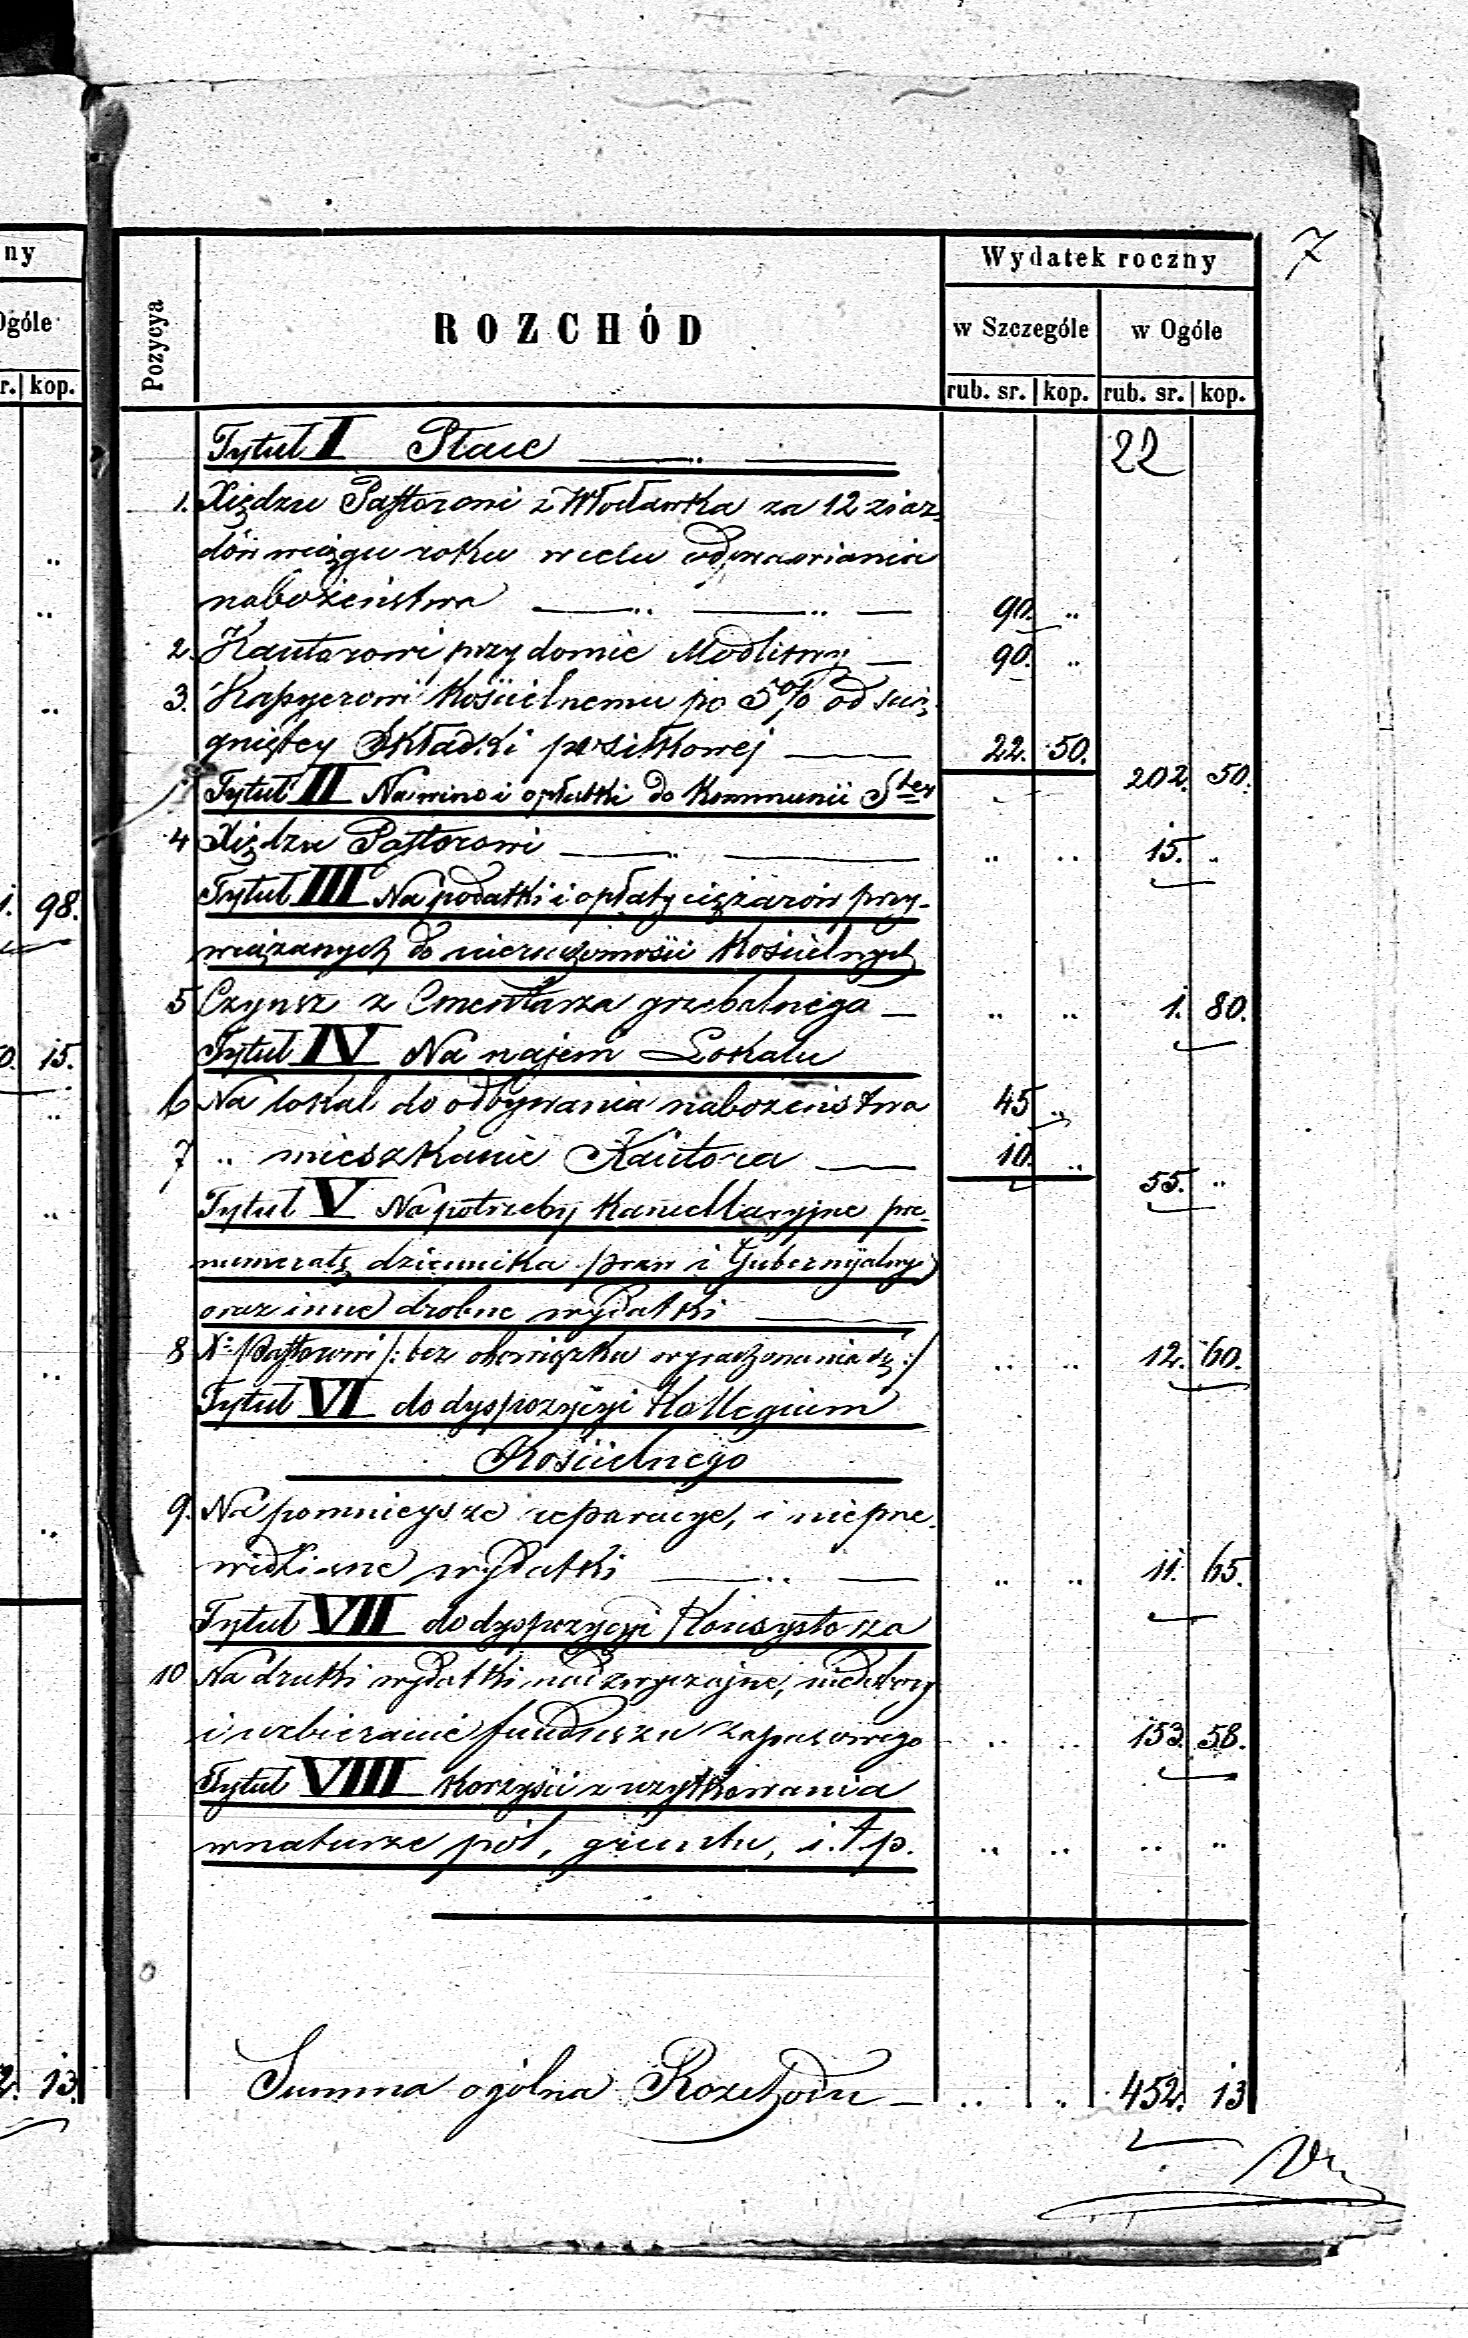 ny
Ogóle
r. kop.
98.
15.
13.
7
Pozycya
ROZCHÓD
Wydatek roczny
w Szczególe w Ogóle
rub. sr. kop. rub. sr. kop.
Tytuł I Płace 22
1. Xiędzu Pastorowi z Włocławka za 12 ziaz-
dów w ciągu roku w celu odprawiania
nabożeństwa 90. ..
2. Kantorowi przy domie Modlitwy 90. ..
3. Kassyerowi Kościelnemu po 5% od scią-
gniętey Składki posiłkowej 22. 50. 202. 50.
Tytuł II Na wino i opłatki do Kommunii Stey
4 Xiędzu Pastorowi .. .. 15. ..
Tytuł III Na podatki i opłaty ciężarów przy-
wiązanych do nieruchomości Kościelnych
5 Czynsz z Cmentarza grzebalnego .. .. 1. 80.
Tytuł IV Na najem Lokalu
6 Na lokal do odbywania nabożeństwa 45 ..
7 .. mieszkanie Kantora 10. .. 55. ..
Tytuł V Na potrzeby Kancellaryjne pre-
numeratę dziennika praw i Gubernijalny
oraz inne drobne wydatki
8 X: Pastorowi /: bez obowiązku wyrachowania się :/ .. .. 12. 60.
Tytuł VI do dyspozycyi Kollegium
Kościelnego
9. Na pomnieysze reparacye, i nieprze-
widziane wydatki .. .. 11. 65.
Tytuł VII do dyspozycyi Konsystorza
10 Na druki wydatki nadzwyczajne, niedobory
i uzbieranie funduszu zapasowego .. .. 153. 58.
Tytuł VIII Korzyści z użytkowania
w naturze pól, gruntu, i. t. p. .. .. .. ..
Summa ogólna Rozchodu .. .. 452. 13